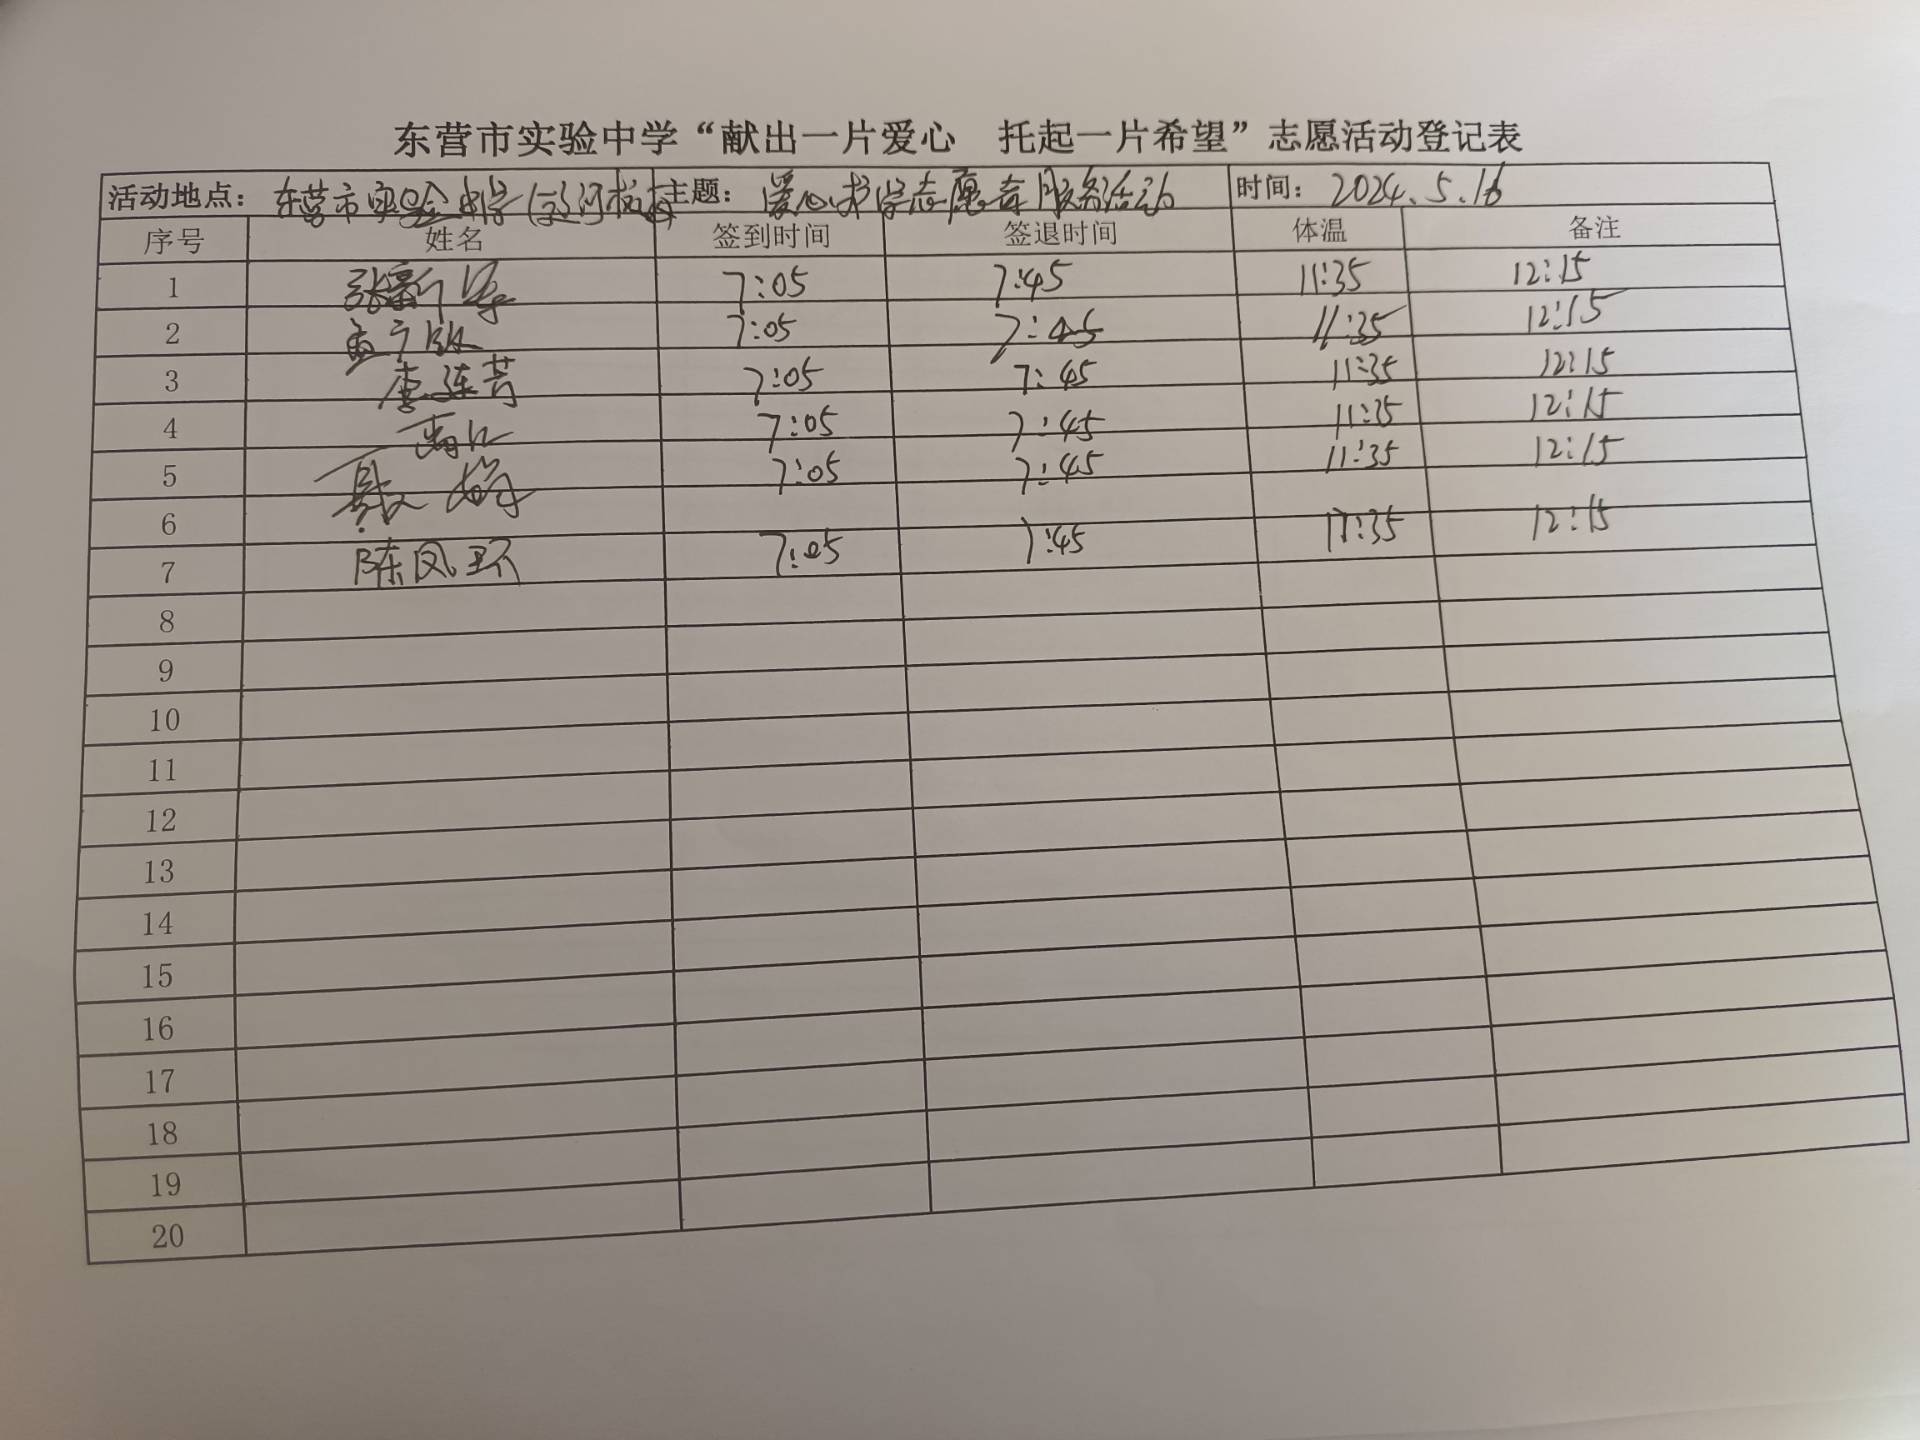 东营市实验中学“献出一片爱心 托起一片希望”志愿活动登记表
活动地点：东营市实验中学（运河校区 主题：爱心助学志愿者服务活动 时间：2024.5.16
序号 姓名 签到时间 签退时间 体温 备注
1 张新 7:05 7:45 11:35 12:15
2 7:05 7:45 11:35 12:15
3 李连芳 7:05 7:45 11:35 12:15
4 7:05 7:45 11:35 12:15
5 7:05 7:45 11:35 12:15
6
7 陈凤环 7:05 7:45 11:35 12:15
8
9
10
11
12
13
14
15
16
17
18
19
20